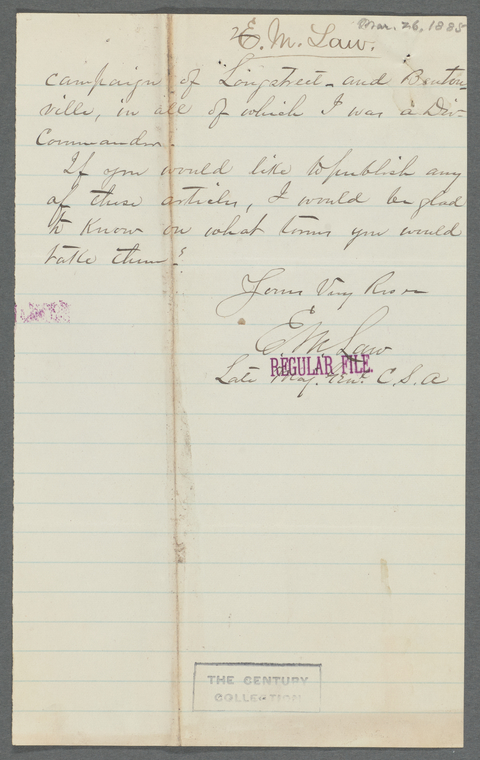 Mar. 26, 1885
E. M. Law.
campaign of Longstreet - and Benton-
ville, in all of which I was a Div-
Commander.
If you would like to publish any
of these articles, I would be glad
to know on what terms you would
take them.
Yours Very
E M Law
REGULAR FILE.
Late Maj. Gen. C. S. A
THE CENTURY
COLLECTION